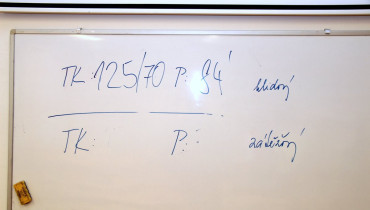 TK: 125/70 P: 94' klidový
TK: P: zátěžový